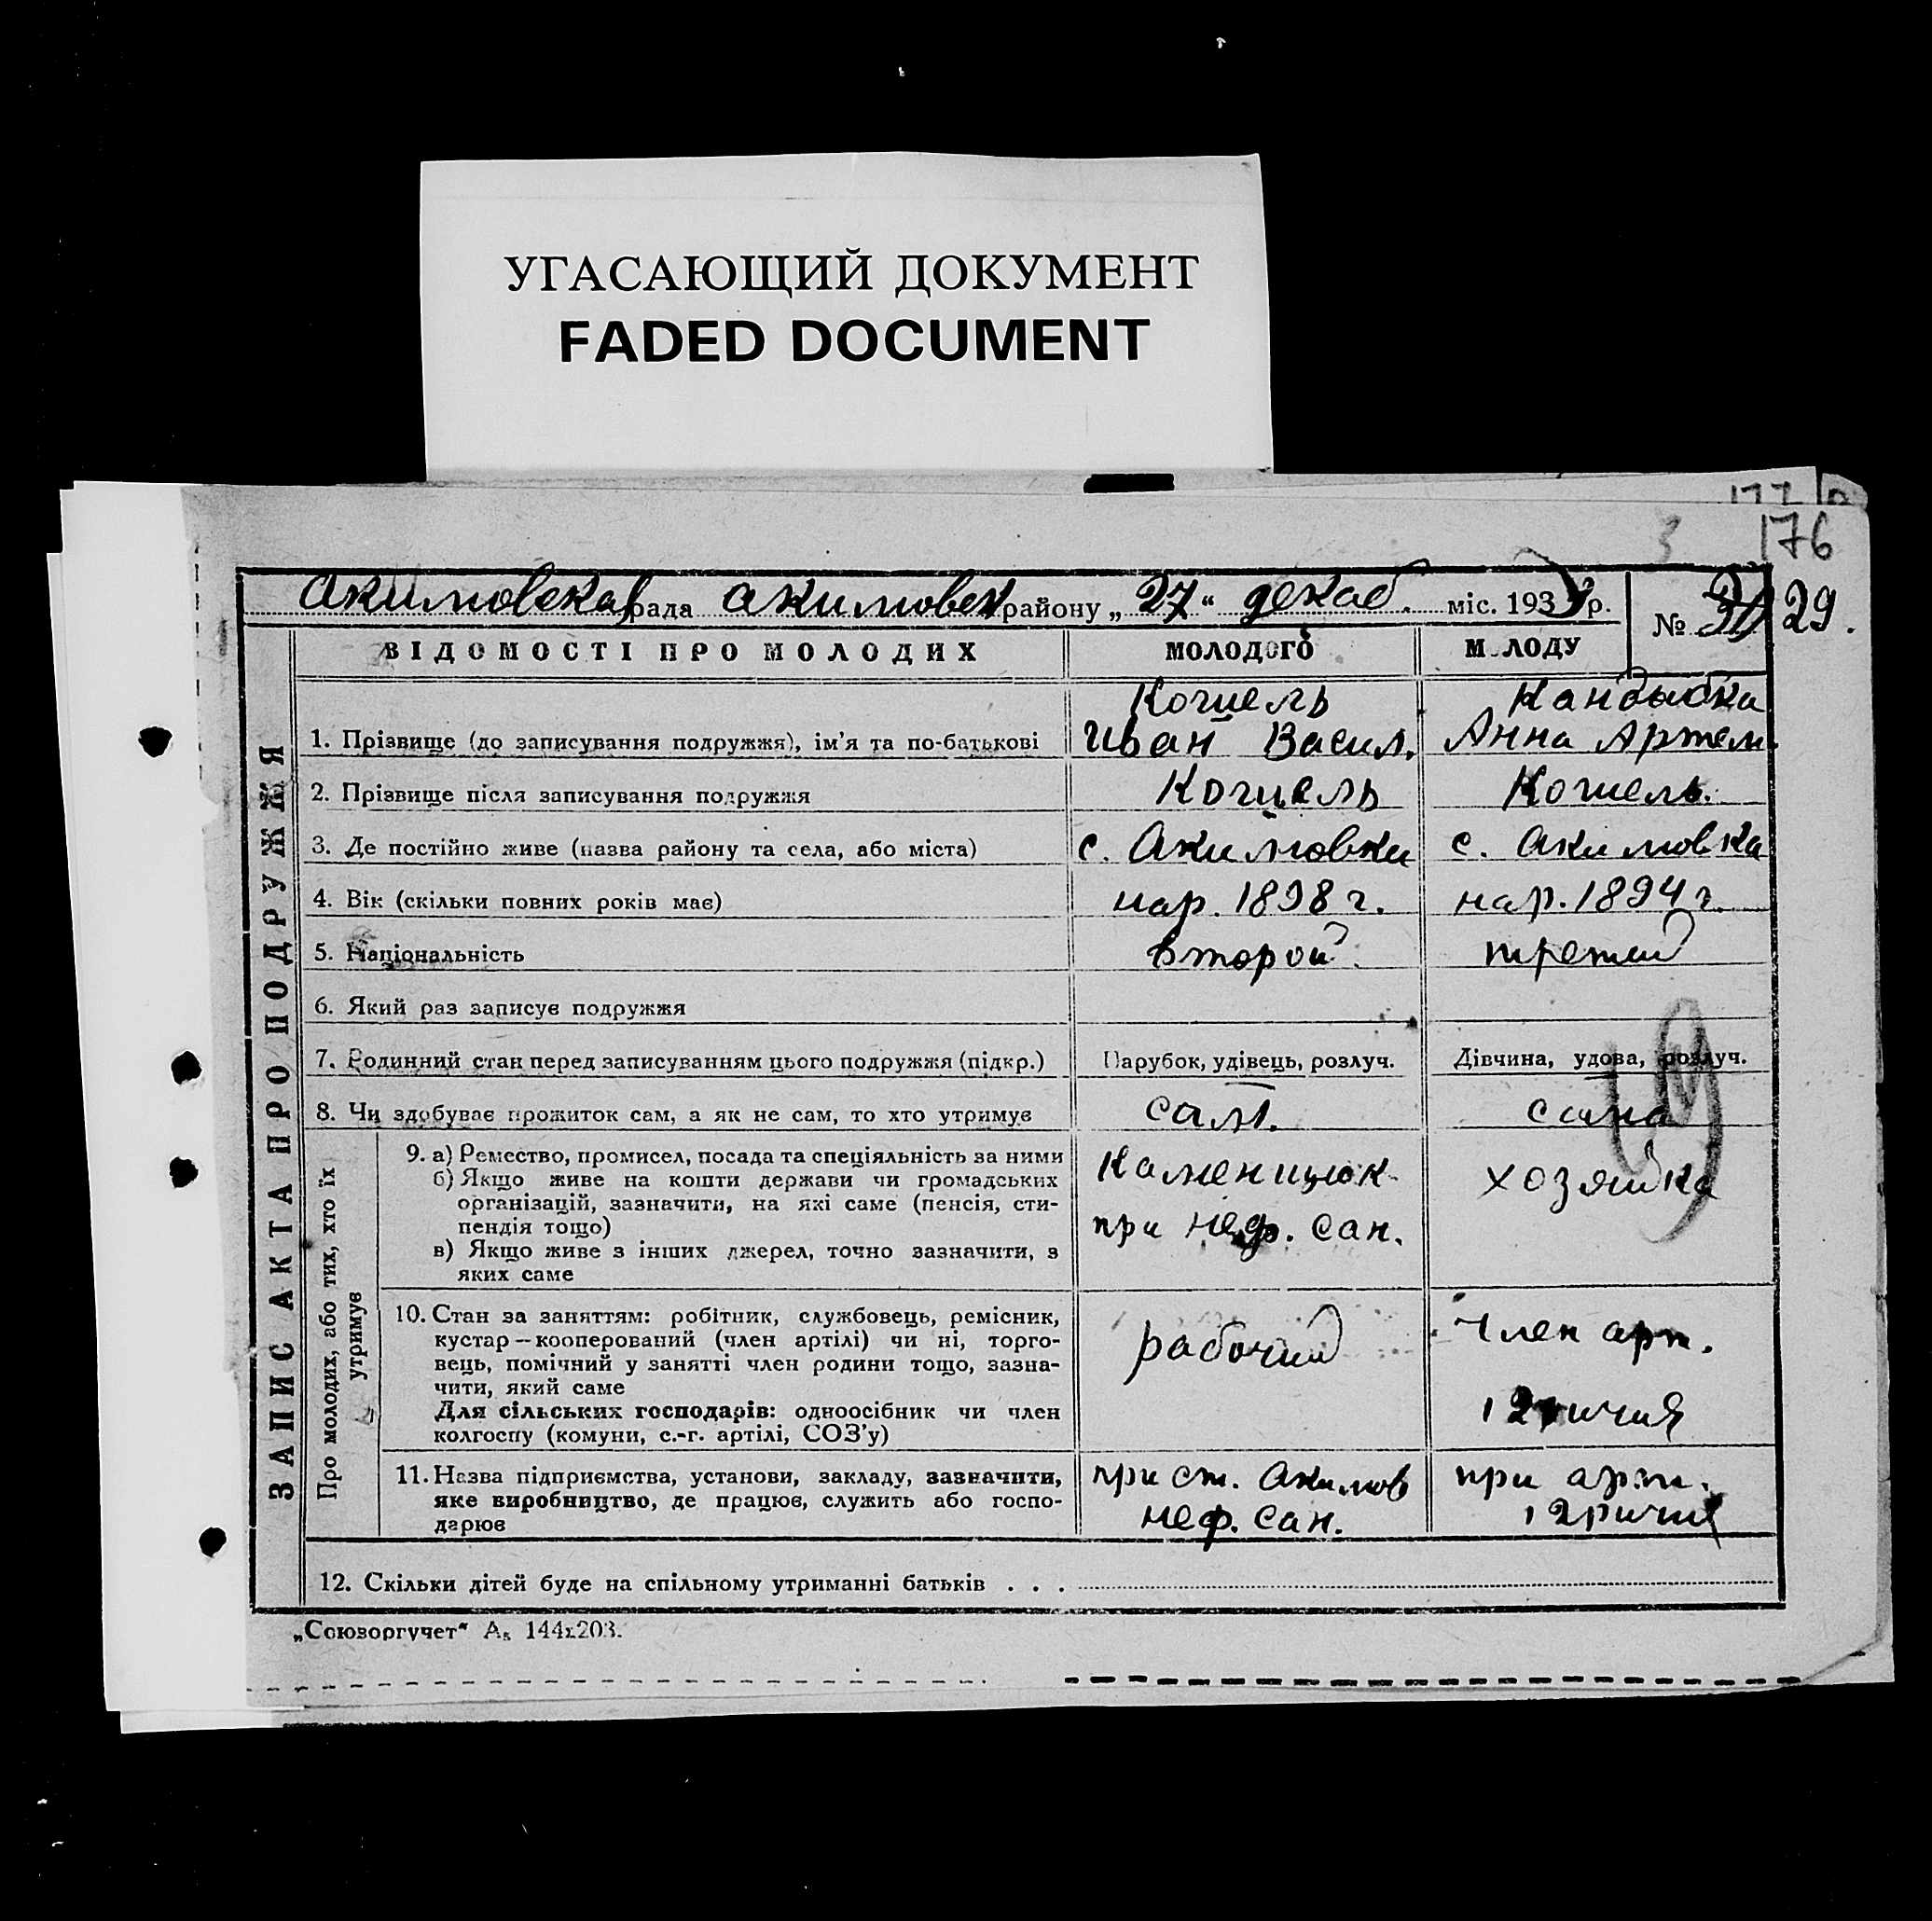 УГАСАЮЩИЙ ДОКУМЕНТ
FADED DOCUMENT
176
Акимовская рада Акимовск району „27“ декаб. міс. 193 р.
№ 29.
ВІДОМОСТІ ПРО МОЛОДИХ МОЛОДОГО МОЛОДУ
ЗАПИС АКТА ПРО ПОДРУЖЖЯ
1. Прізвище (до записування подружжя), ім'я та по-батькові
Иван Васил.
Анна Артем.
2. Прізвище після записування подружжя
3. Де постійно живе (назва району та села, або міста) с. Акимовки с. Акимовка
4. Вік (скільки повних років має) нар. 1898 г. нар. 1894 г.
5. Національність второй. третий
6. Який раз записує подружжя
7. Родинний стан перед записуванням цього подружжя (підкр.) Парубок, удівець, розлуч. Дівчина, удова, розлуч.
8. Чи здобуває прожиток сам, а як не сам, то хто утримує сам. сама
Про молодих, або тих, хто їх утримує
9. а) Ремество, промисел, посада та спеціяльність за ними
б) Якщо живе на кошти держави чи громадських
організацій, зазначити, на які саме (пенсія, сти-
пендія тощо)
в) Якщо живе з інших джерел, точно зазначити, з
яких саме
при неф. сан.
хозяйка
10. Стан за заняттям: робітник, службовець, ремісник,
кустар — кооперований (член артілі) чи ні, торго-
вець, помічний у занятті член родини тощо, зазна-
чити, який саме
Для сільських господарів: одноосібник чи член
колгоспу (комуни, с.-г. артілі, СОЗ'у)
рабочий
член арт.
11. Назва підприємства, установи, закладу, зазначити,
яке виробництво, де працює, служить або госпо-
дарює
при ст. Акимов
неф. сан.
при арт.
12 ричия
12. Скільки дітей буде на спільному утриманні батьків . . .
„Союзоргучет“